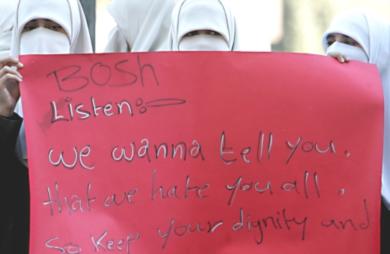 BOSH
Listen:
we wanna tell you,
that we hate you all,
So Keep your dignity and